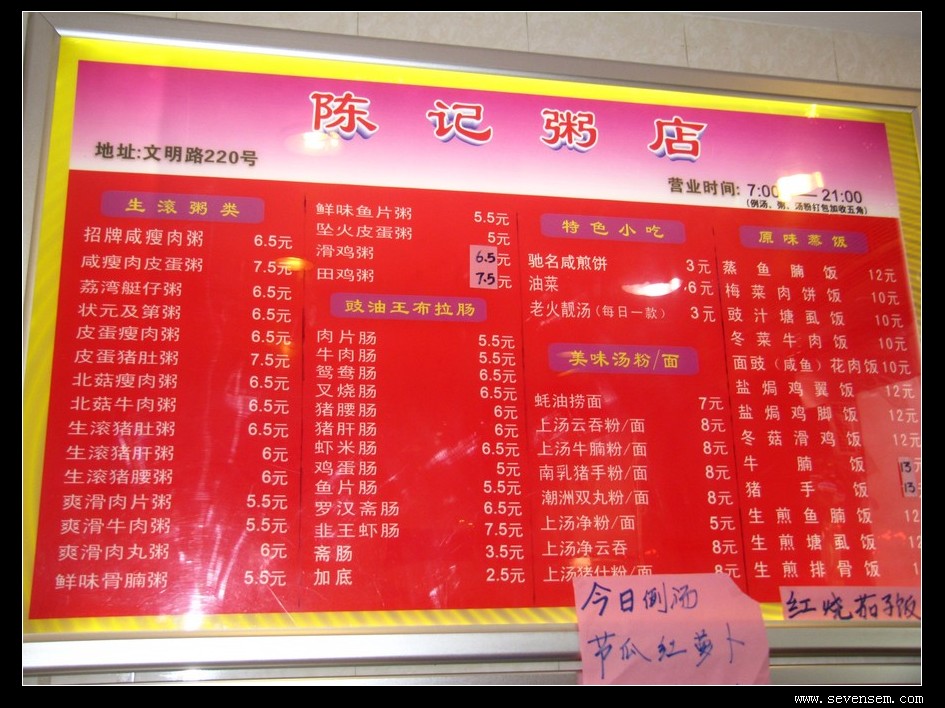 陈记粥店
地址:文明路220号
营业时间: 7:00 — 21:00
(例汤、粥、汤粉打包加收五角)
生滚粥类
招牌咸瘦肉粥 6.5元
咸瘦肉皮蛋粥 7.5元
荔湾艇仔粥 6.5元
状元及第粥 6.5元
皮蛋瘦肉粥 6.5元
皮蛋猪肚粥 7.5元
北菇瘦肉粥 6.5元
北菇牛肉粥 6.5元
生滚猪肚粥 6.5元
生滚猪肝粥 6元
生滚猪腰粥 6元
爽滑肉片粥 5.5元
爽滑牛肉粥 5.5元
爽滑肉丸粥 6元
鲜味骨腩粥 5.5元
鲜味鱼片粥 5.5元
坠火皮蛋粥 5元
滑鸡粥 6.5元
田鸡粥 7.5元
豉油王布拉肠
肉片肠 5.5元
牛肉肠 5.5元
鸳鸯肠 6.5元
叉烧肠 6.5元
猪腰肠 6元
猪肝肠 6元
虾米肠 6.5元
鸡蛋肠 5元
鱼片肠 5.5元
罗汉斋肠 6.5元
韭王虾肠 7.5元
斋肠 3.5元
加底 2.5元
特色小吃
驰名咸煎饼 3元
油菜 6元
老火靓汤(每日一款) 3元
美味汤粉/面
蚝油捞面 7元
上汤云吞粉/面 8元
上汤牛腩粉/面 8元
南乳猪手粉/面 8元
潮洲双丸粉/面 8元
上汤净粉/面 5元
上汤净云吞 8元
上汤猪什粉/面 8元
原味蒸饭
蒸鱼腩饭 12元
梅菜肉饼饭 10元
豉汁塘虱饭 10元
冬菜牛肉饭 10元
面豉(咸鱼)花肉饭 10元
盐焗鸡翼饭 12元
盐焗鸡脚饭 12元
冬菇滑鸡饭 12元
牛腩饭 13
猪手饭 13
生煎鱼腩饭 12
生煎塘虱饭 12
生煎排骨饭
今日例汤
节瓜红萝卜
红烧茄子饭
www.sevensem.com